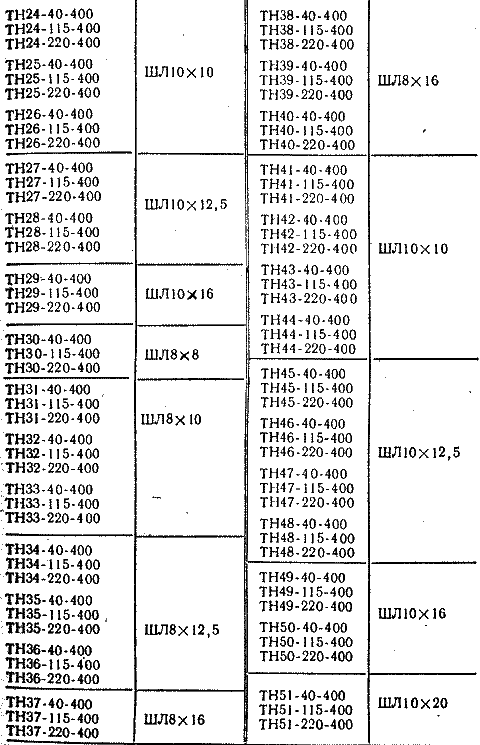 ТН24-40-400
ТН24-115-400
ТН24-220-400
ТН25-40-400
ТН25-115-400
ТН25-220-400
ТН26-40-400
ТН26-115-400
ТН26-220-400
ШЛ10×10
ТН27-40-400
ТН27-115-400
ТН27-220-400
ТН28-40-400
ТН28-115-400
ТН28-220-400
ШЛ10×12,5
ТН29-40-400
ТН29-115-400
ТН29-220-400
ШЛ10×16
ТН30-40-400
ТН30-115-400
ТН30-220-400
ШЛ8×8
ТН31-40-400
ТН31-115-400
ТН31-220-400
ТН32-40-400
ТН32-115-400
ТН32-220-400
ТН33-40-400
ТН33-115-400
ТН33-220-400
ШЛ8×10
ТН34-40-400
ТН34-115-400
ТН34-220-400
ТН35-40-400
ТН35-115-400
ТН35-220-400
ТН36-40-400
ТН36-115-400
ТН36-220-400
ШЛ8×12,5
ТН37-40-400
ТН37-115-400
ТН37-220-400
ШЛ8×16
ТН38-40-400
ТН38-115-400
ТН38-220-400
ТН39-40-400
ТН39-115-400
ТН39-220-400
ТН40-40-400
ТН40-115-400
ТН40-220-400
ШЛ8×16
ТН41-40-400
ТН41-115-400
ТН41-220-400
ТН42-40-400
ТН42-115-400
ТН42-220-400
ТН43-40-400
ТН43-115-400
ТН43-220-400
ТН44-40-400
ТН44-115-400
ТН44-220-400
ШЛ10×10
ТН45-40-400
ТН45-115-400
ТН45-220-400
ТН46-40-400
ТН46-115-400
ТН46-220-400
ТН47-40-400
ТН47-115-400
ТН47-220-400
ТН48-40-400
ТН48-115-400
ТН48-220-400
ШЛ10×12,5
ТН49-40-400
ТН49-115-400
ТН49-220-400
ТН50-40-400
ТН50-115-400
ТН50-220-400
ШЛ10×16
ТН51-40-400
ТН51-115-400
ТН51-220-400
ШЛ10×20